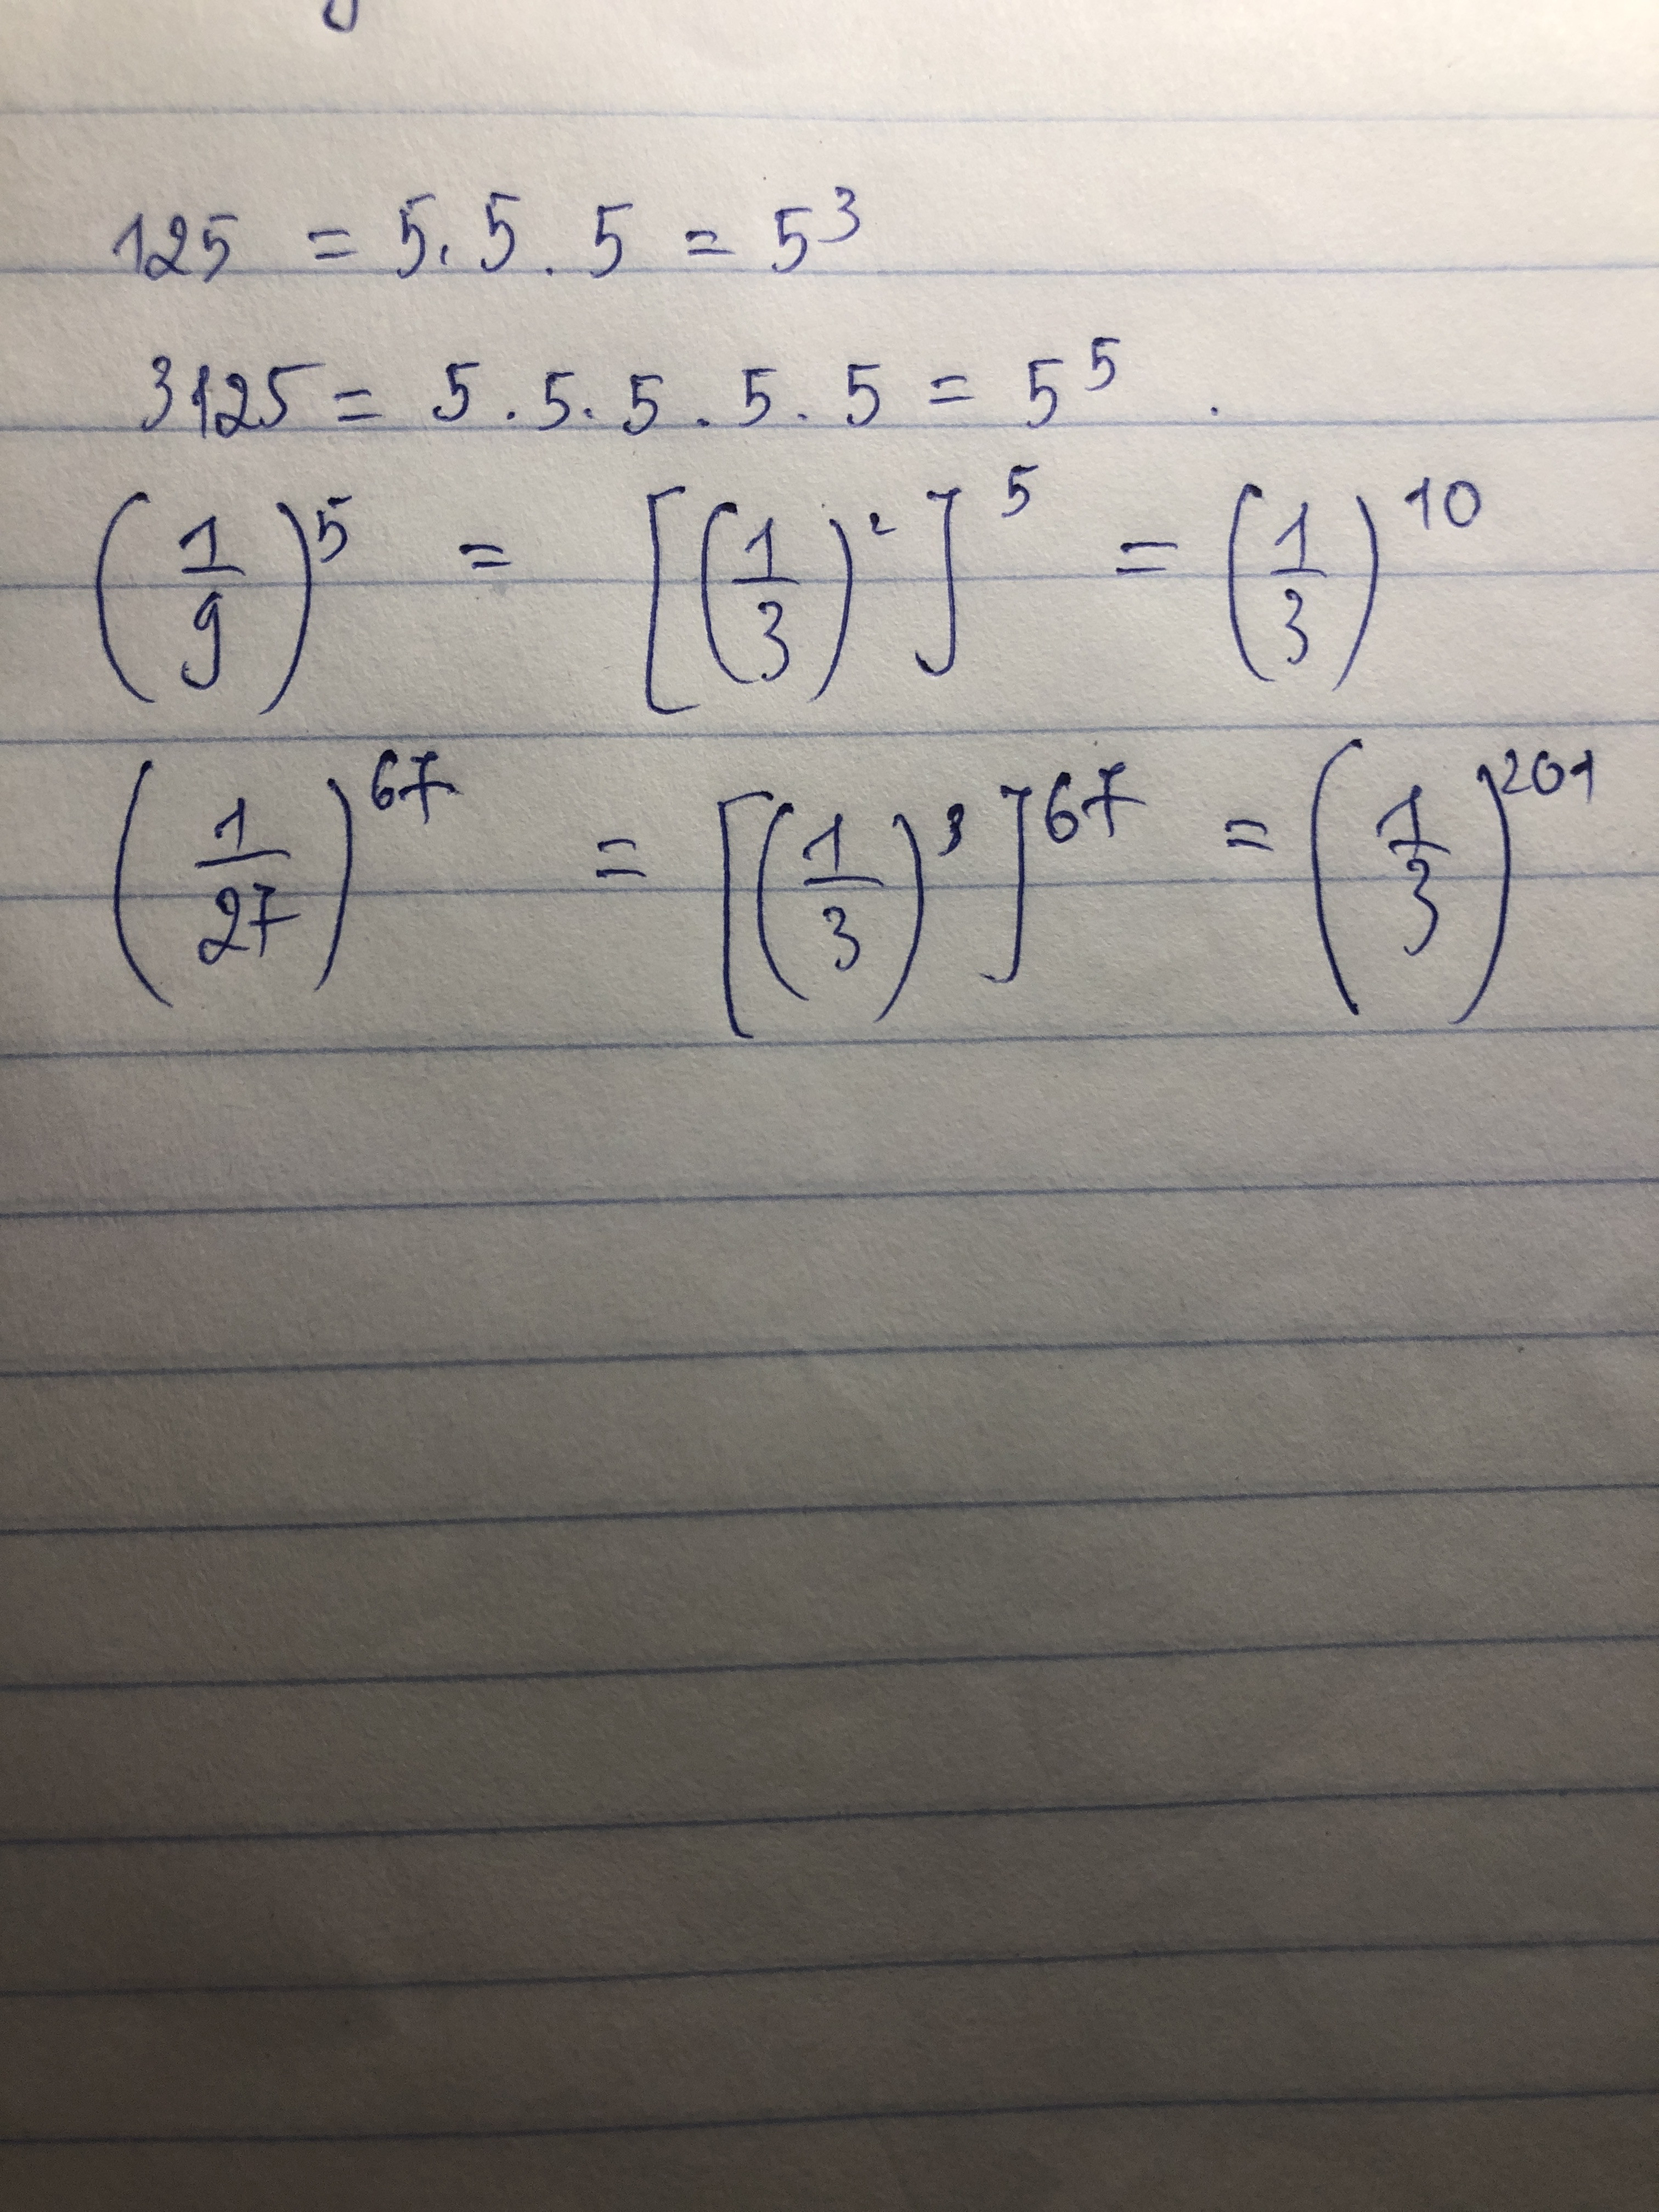 125 = 5. 5 . 5 = 5³
3125 = 5 . 5 . 5 . 5 . 5 = 5⁵ .
(1/9)⁵ = [(1/3)²]⁵ = (1/3)¹⁰
(1/27)⁶⁷ = [(1/3)³]⁶⁷ = (1/3)²⁰¹